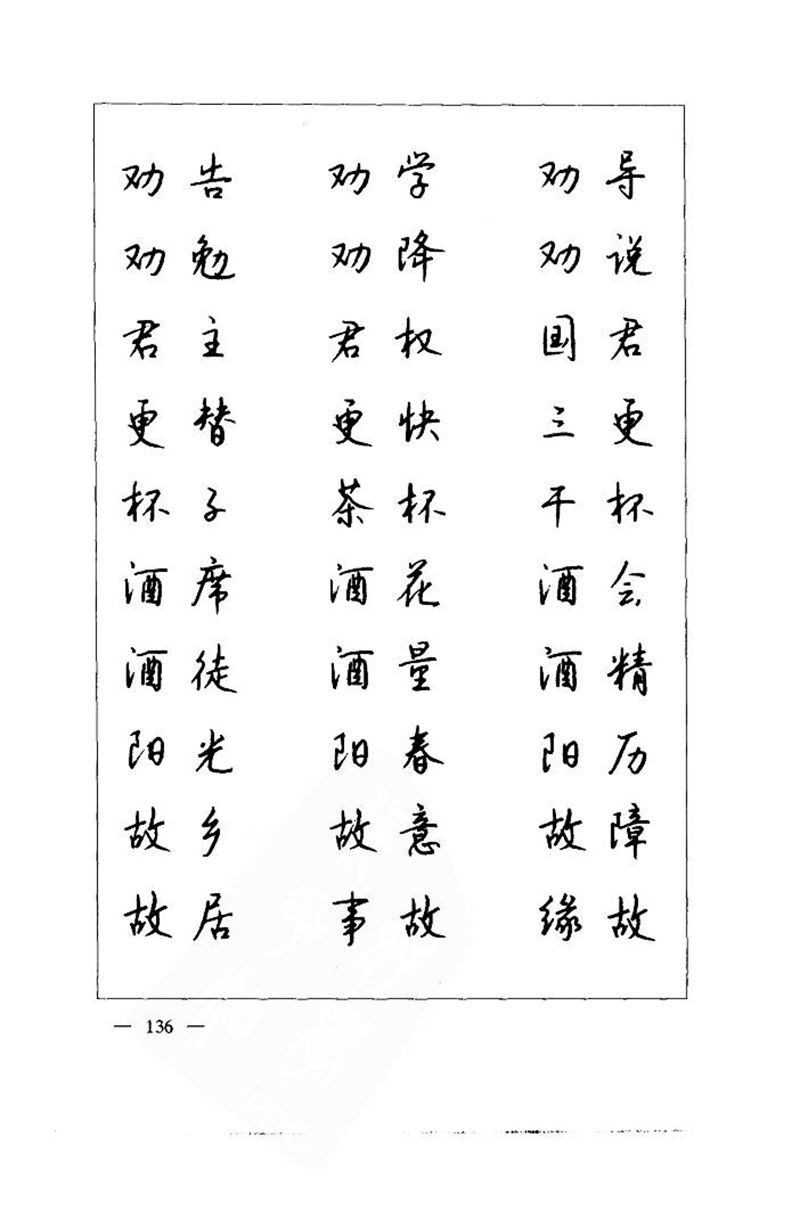 劝告 劝学 劝导
劝勉 劝降 劝说
君主 君权 国君
更替 更快 三更
杯子 茶杯 干杯
酒席 酒花 酒会
酒徒 酒量 酒精
阳光 阳春 阳历
故乡 故意 故障
故居 事故 缘故
— 136 —